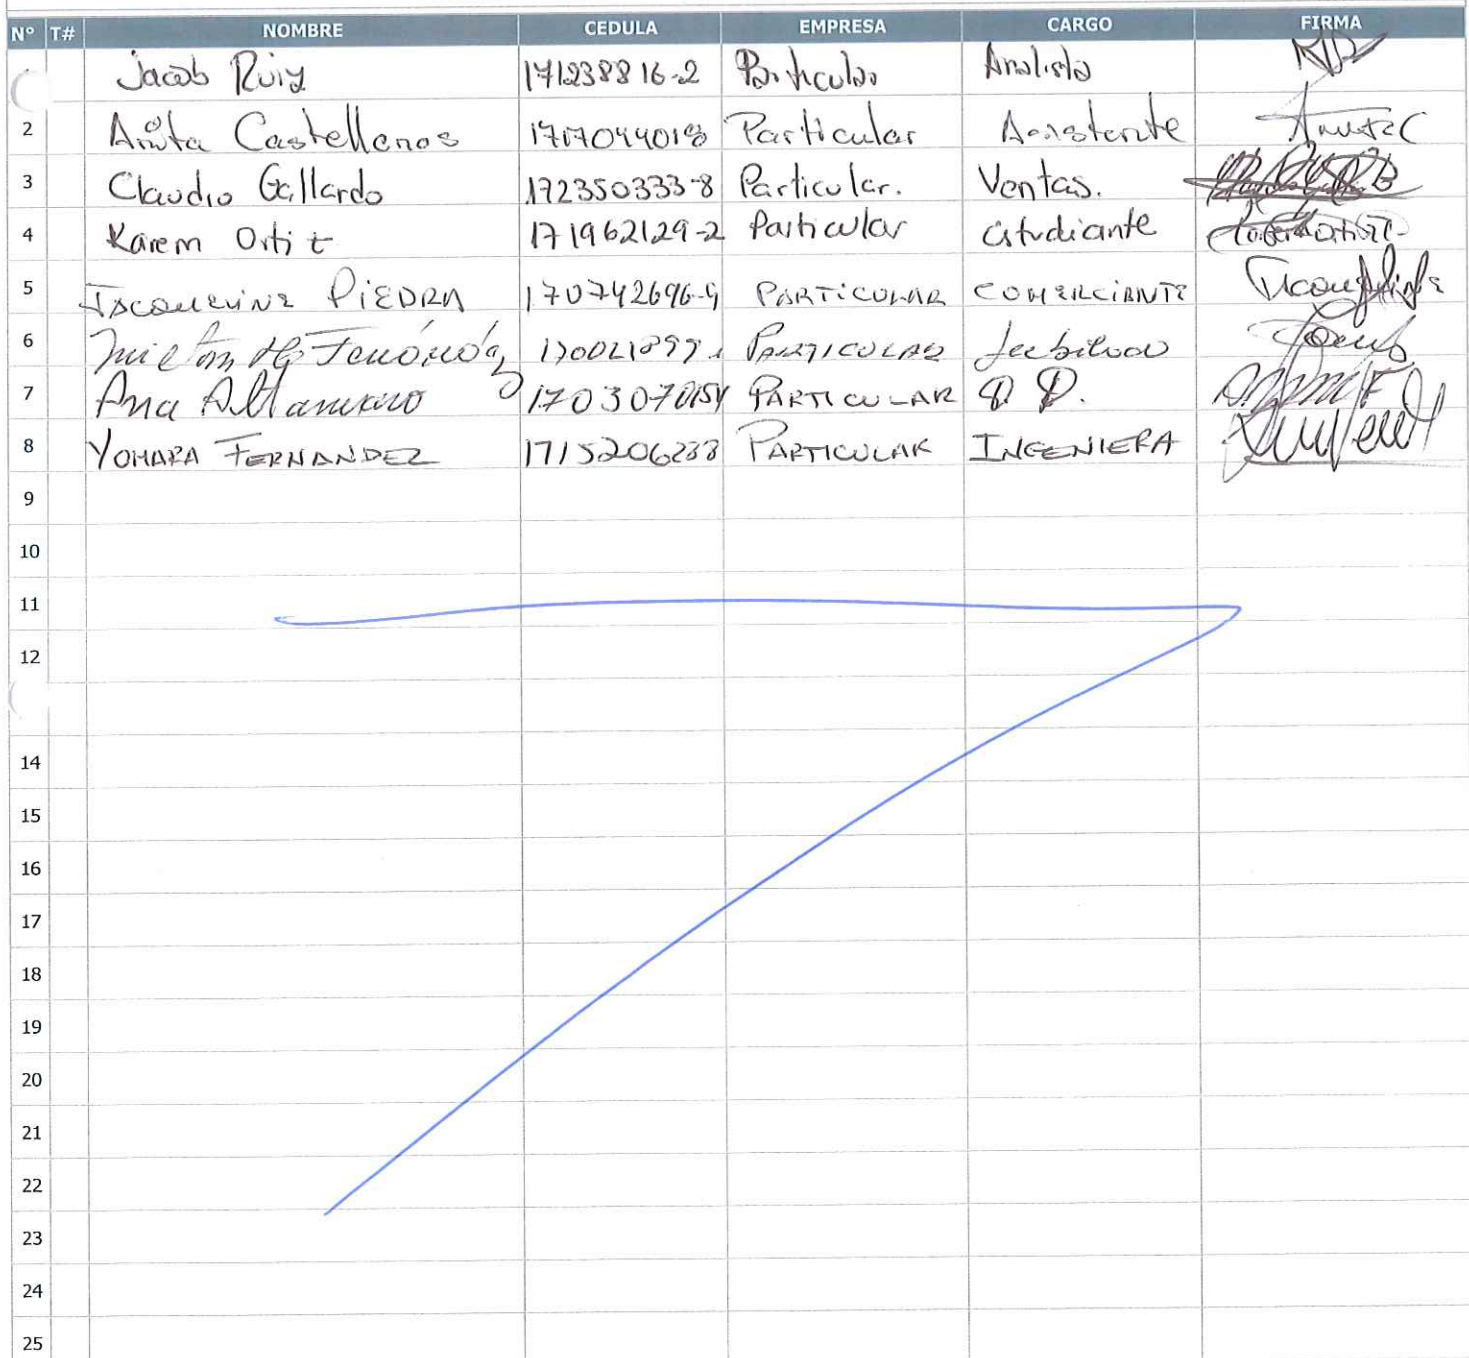 N° T# NOMBRE CEDULA EMPRESA CARGO FIRMA
Jacob Ruiz 171238816-2 Particular Analista
2 Anita Castellanos 1717044018 Particular Asistente
3 Claudio Gallardo 172350333-8 Particular. Ventas.
4 Karem Ortiz 171962129-2 Particular estudiante
5 Jacqueline PIEDRA 170742696-9 PARTICULAR COMERCIANTE
6 PARTICULAR
7 Ana Altamirano PARTICULAR Q D.
8 YOHARA FERNANDEZ 1715206238 PARTICULAR INGENIERA
9
10
11
12
14
15
16
17
18
19
20
21
22
23
24
25